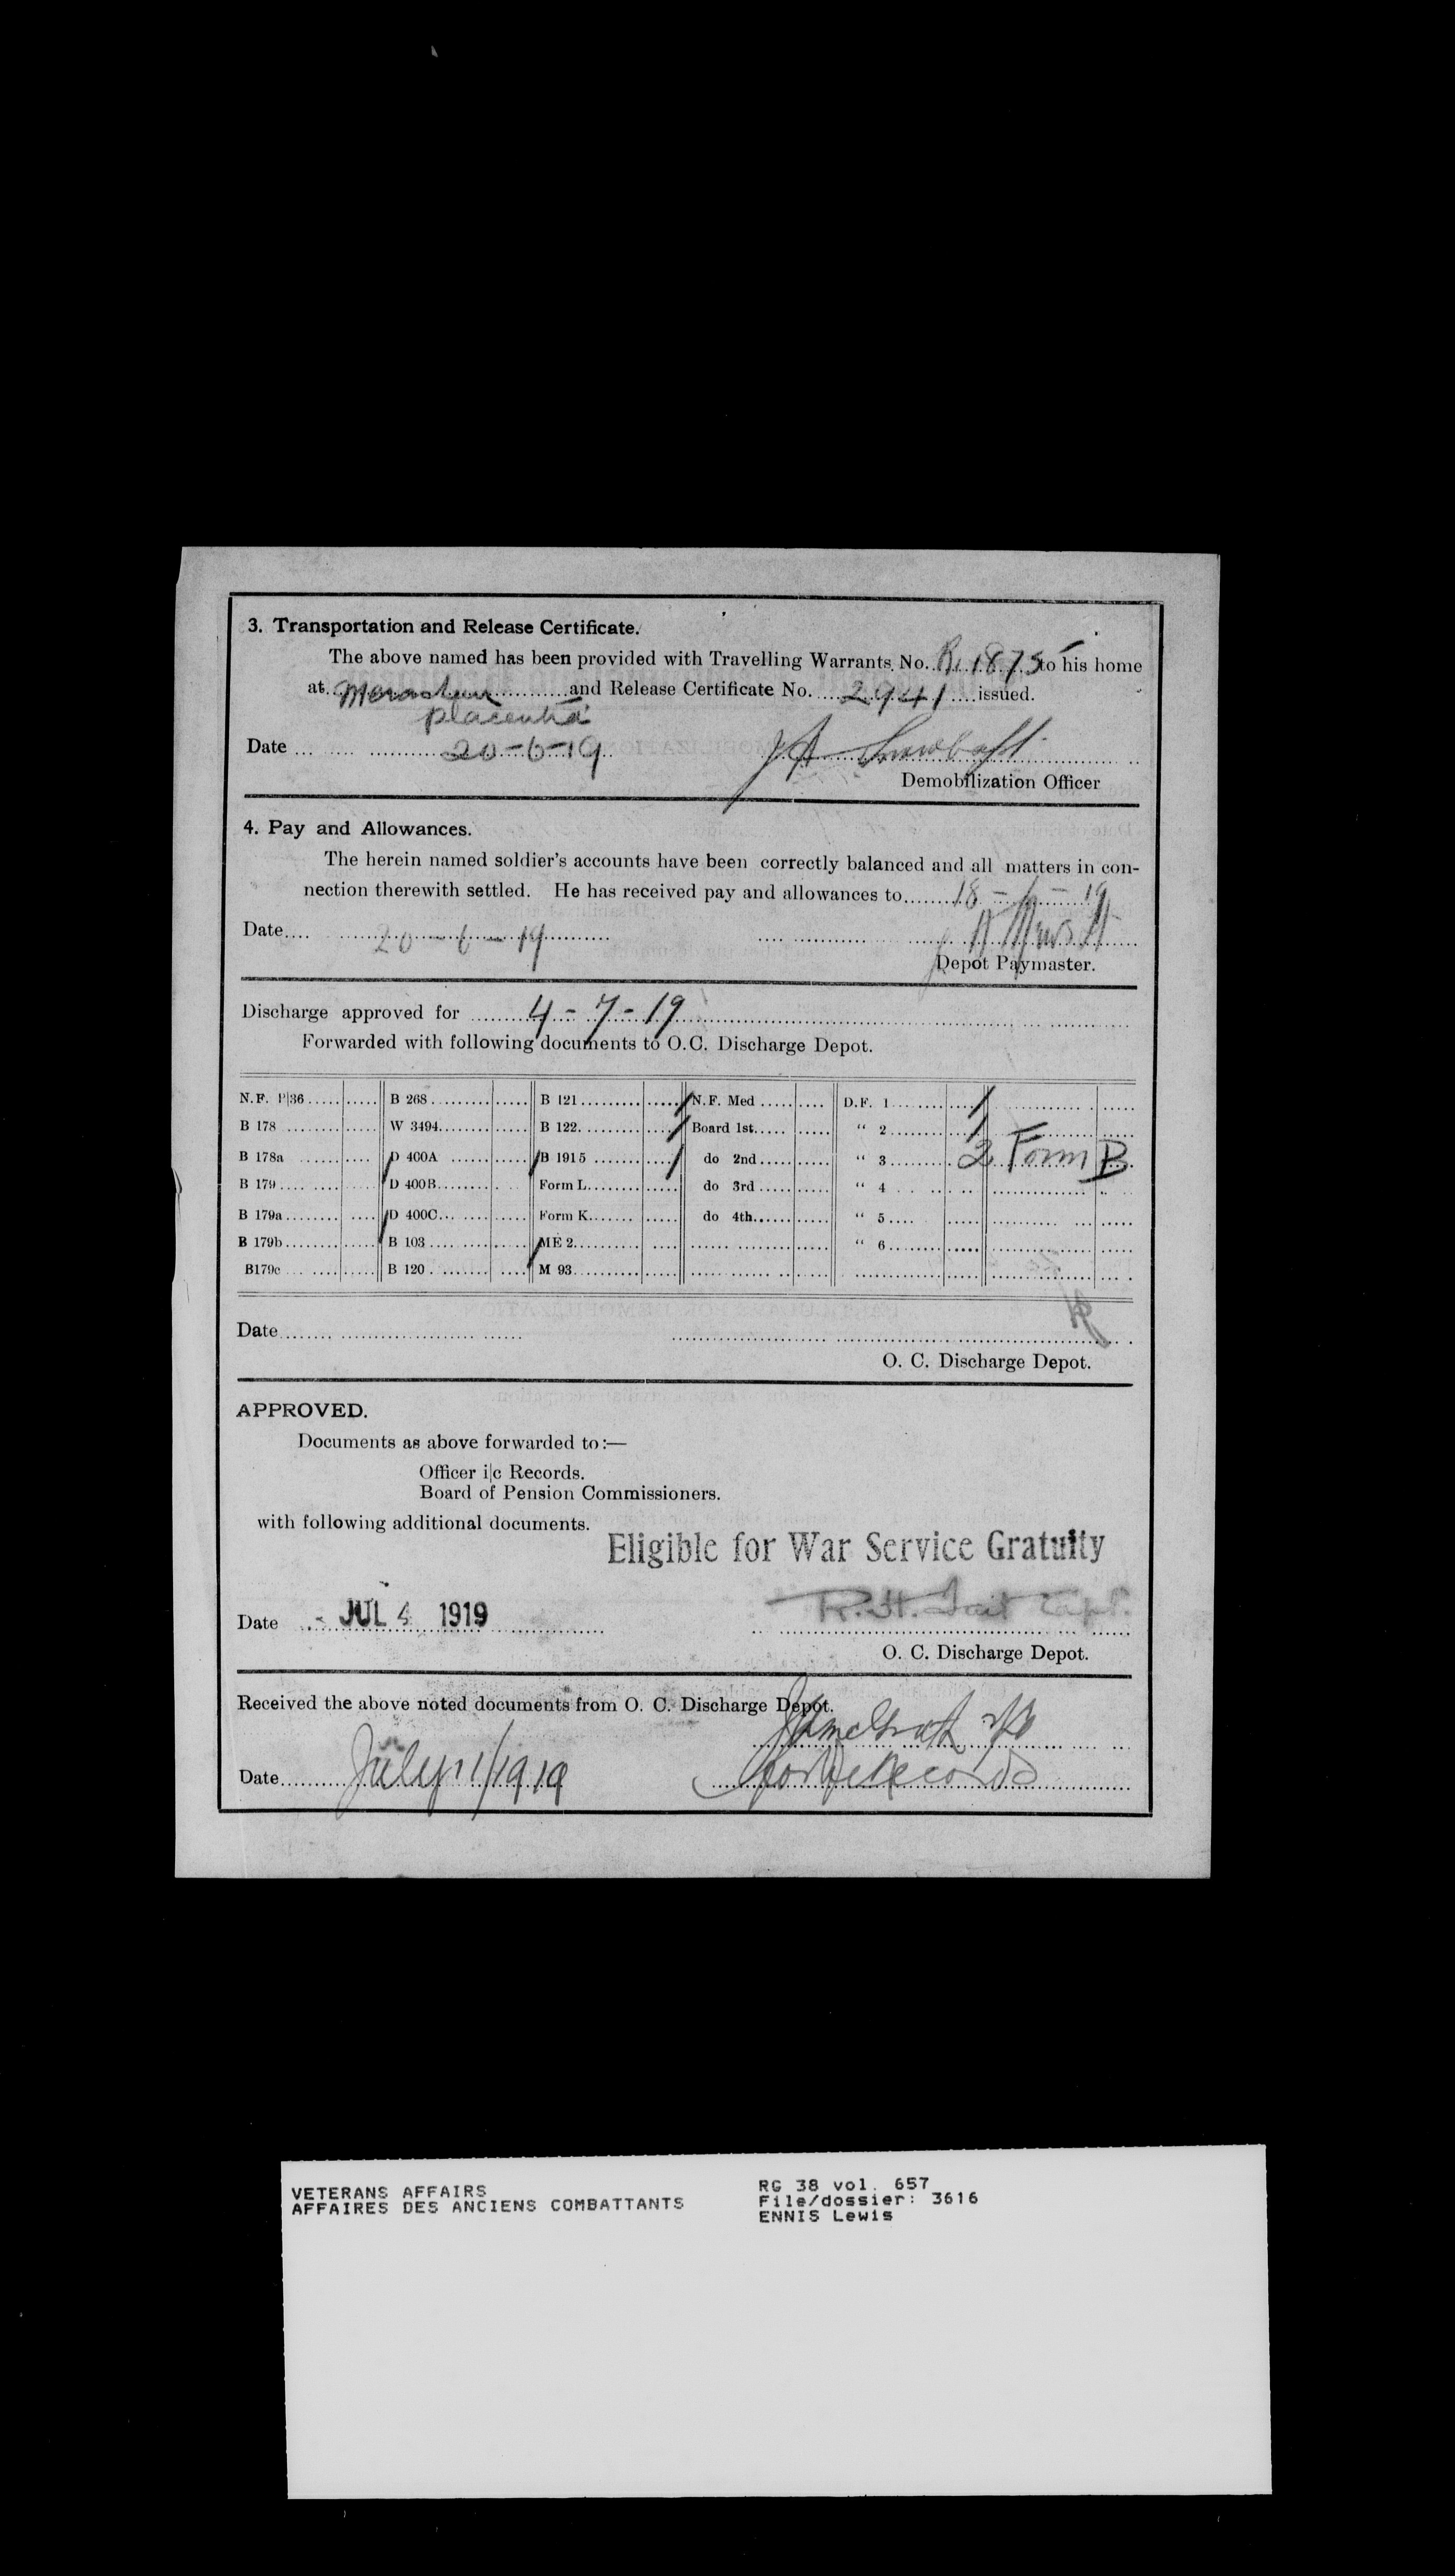 3. Transportation and Release Certificate.
The above named has been provided with Travelling Warrants No. R. 1875 to his home
at Merasheen and Release Certificate No. 2941 issued.
Placentia
Date 20-6-19
Demobilization Officer
4. Pay and Allowances.
The herein named soldier's accounts have been correctly balanced and all matters in con-
nection therewith settled. He has received pay and allowances to 18-6-19
Date 20-6-19
Depot Paymaster.
Discharge approved for 4-7-19
Forwarded with following documents to O.C. Discharge Depot.
N.F. P|36 B 268 B 121 / N.F. Med D.F. 1 /
B 178 W 3494 B 122 / Board 1st “ 2 /
B 178a / D 400A / B 1915 / do 2nd “ 3 2 Form B
B 179 D 400B Form L do 3rd “ 4
B 179a / D 400C Form K do 4th “ 5
B 179b B 103 / ME 2 “ 6
B179c B 120 M 93
Date
O. C. Discharge Depot.
APPROVED.
Documents as above forwarded to:—
Officer i|c Records.
Board of Pension Commissioners.
with following additional documents.
Eligible for War Service Gratuity
R.H. Tait Capt.
Date JUL 4 1919
O. C. Discharge Depot.
Received the above noted documents from O. C. Discharge Depot.
Date July 11/1919 Records
VETERANS AFFAIRS
AFFAIRES DES ANCIENS COMBATTANTS
RG 38 vol. 657
File/dossier: 3616
ENNIS Lewis